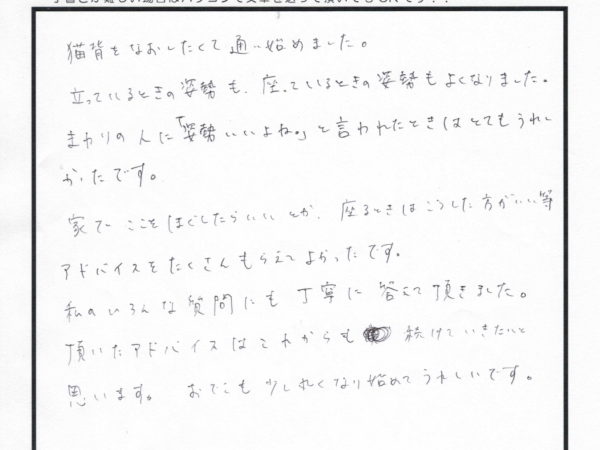 猫背をなおしたくて通い始めました。
立っているときの姿勢も、座っているときの姿勢もよくなりました。
まわりの人に「姿勢いいよね。」と言われたときはとてもうれし
かったです。
家で ここをほぐしたらいい とか、座るときはこうした方がいい等
アドバイスをたくさんもらえてよかったです。
私のいろんな質問にも丁寧に答えて頂きました。
頂いたアドバイスはこれからも 続けていきたいと
思います。 おでこも少し丸くなり始めてうれしいです。